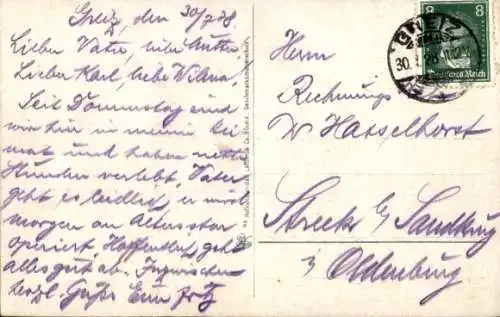 Greiz, den 30/7 28.
Lieber Vater, liebe Mutter,
Lieber Karl, liebe Wilma!
Seit Donnerstag sind
wir hier in meiner Hei
mat und haben nette
Stunden verlebt. Vater
geht es leidlich, er wird
morgen am
operiert. Hoffentlich geht
alles gut ab. Inzwischen
herzl. Grüße Euer Fritz
Herrn
Rechnungs
Hasselhorst
Streek b/ Sandkrug
i/ Oldenburg
GREIZ
30.
8
8
Deutsches Reich